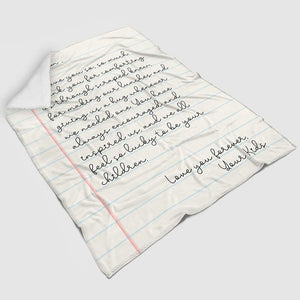 you so, so much
you for comforting
through scraped knees,
for making our lunches and
giving us a hug whenever
we needed one. You have
always encouraged and
inspired us and we all
feel so lucky to be your
children.
Love you forever,
Your Kids